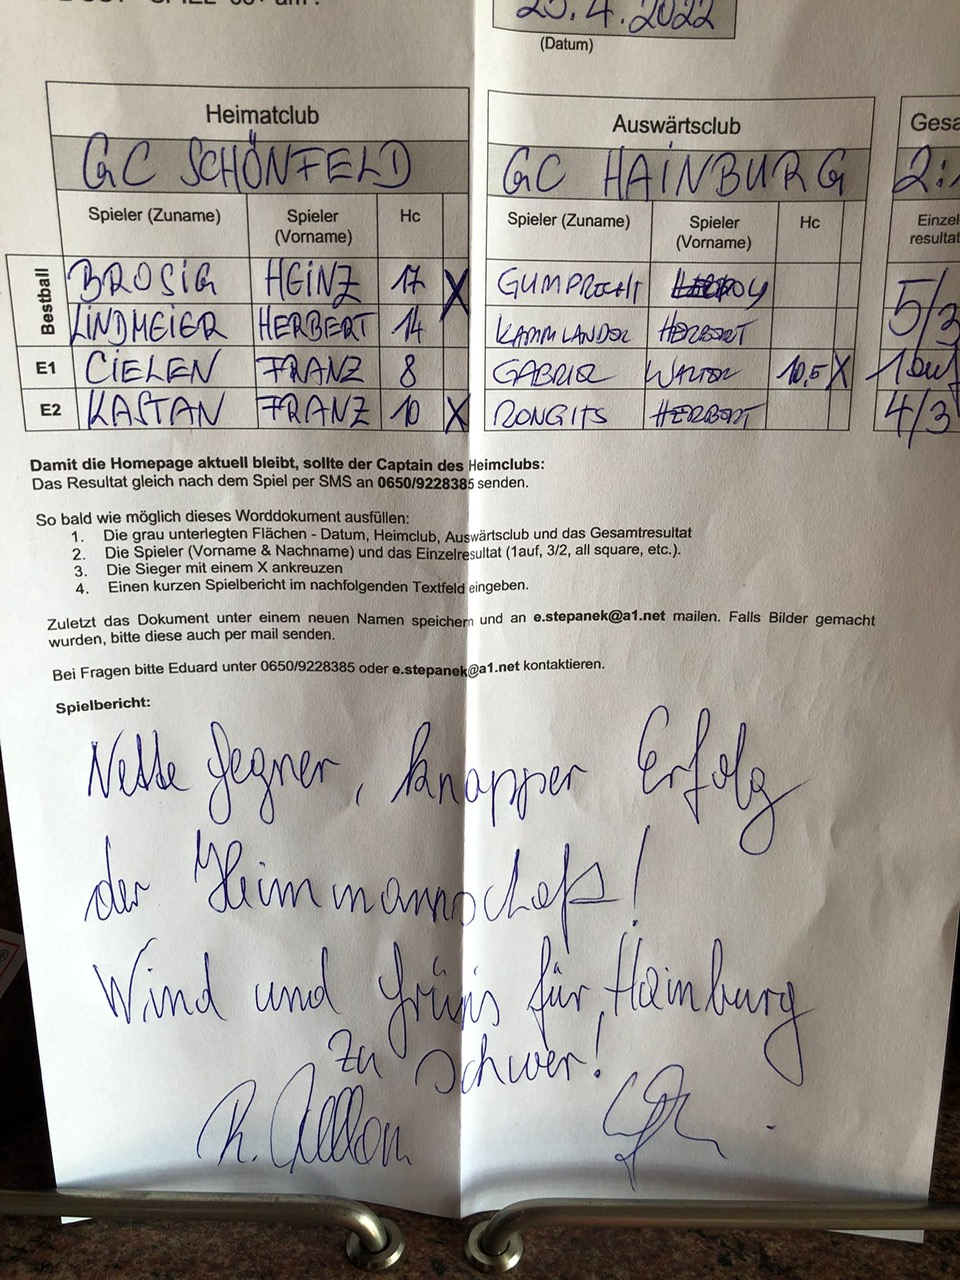 25.4.2022
(Datum)
Heimatclub Auswärtsclub Gesa
GC SCHÖNFELD GC HAINBURG 2:1
Spieler (Zuname) Spieler (Vorname) Hc Spieler (Zuname) Spieler (Vorname) Hc Einzel resultat
Bestball
BROSIG HEINZ 17 X GUMPRECHT 5/3
LINDMEIER HERBERT 14 KAMMLANDER HERBERT
E1 CIELEN FRANZ 8 GABRIEL WALTER 10,5 X 1auf
E2 KASTAN FRANZ 10 X RONGITS HERBERT 4/3
Damit die Homepage aktuell bleibt, sollte der Captain des Heimclubs:
Das Resultat gleich nach dem Spiel per SMS an 0650/9228385 senden.
So bald wie möglich dieses Worddokument ausfüllen:
1. Die grau unterlegten Flächen - Datum, Heimclub, Auswärtsclub und das Gesamtresultat
2. Die Spieler (Vorname & Nachname) und das Einzelresultat (1auf, 3/2, all square, etc.).
3. Die Sieger mit einem X ankreuzen
4. Einen kurzen Spielbericht im nachfolgenden Textfeld eingeben.
Zuletzt das Dokument unter einem neuen Namen speichern und an e.stepanek@a1.net mailen. Falls Bilder gemacht
wurden, bitte diese auch per mail senden.
Bei Fragen bitte Eduard unter 0650/9228385 oder e.stepanek@a1.net kontaktieren.
Spielbericht:
Nette Gegner, knapper Erfolg
der Heimmannschaft!
Wind und Grüns für Hainburg
zu schwer!